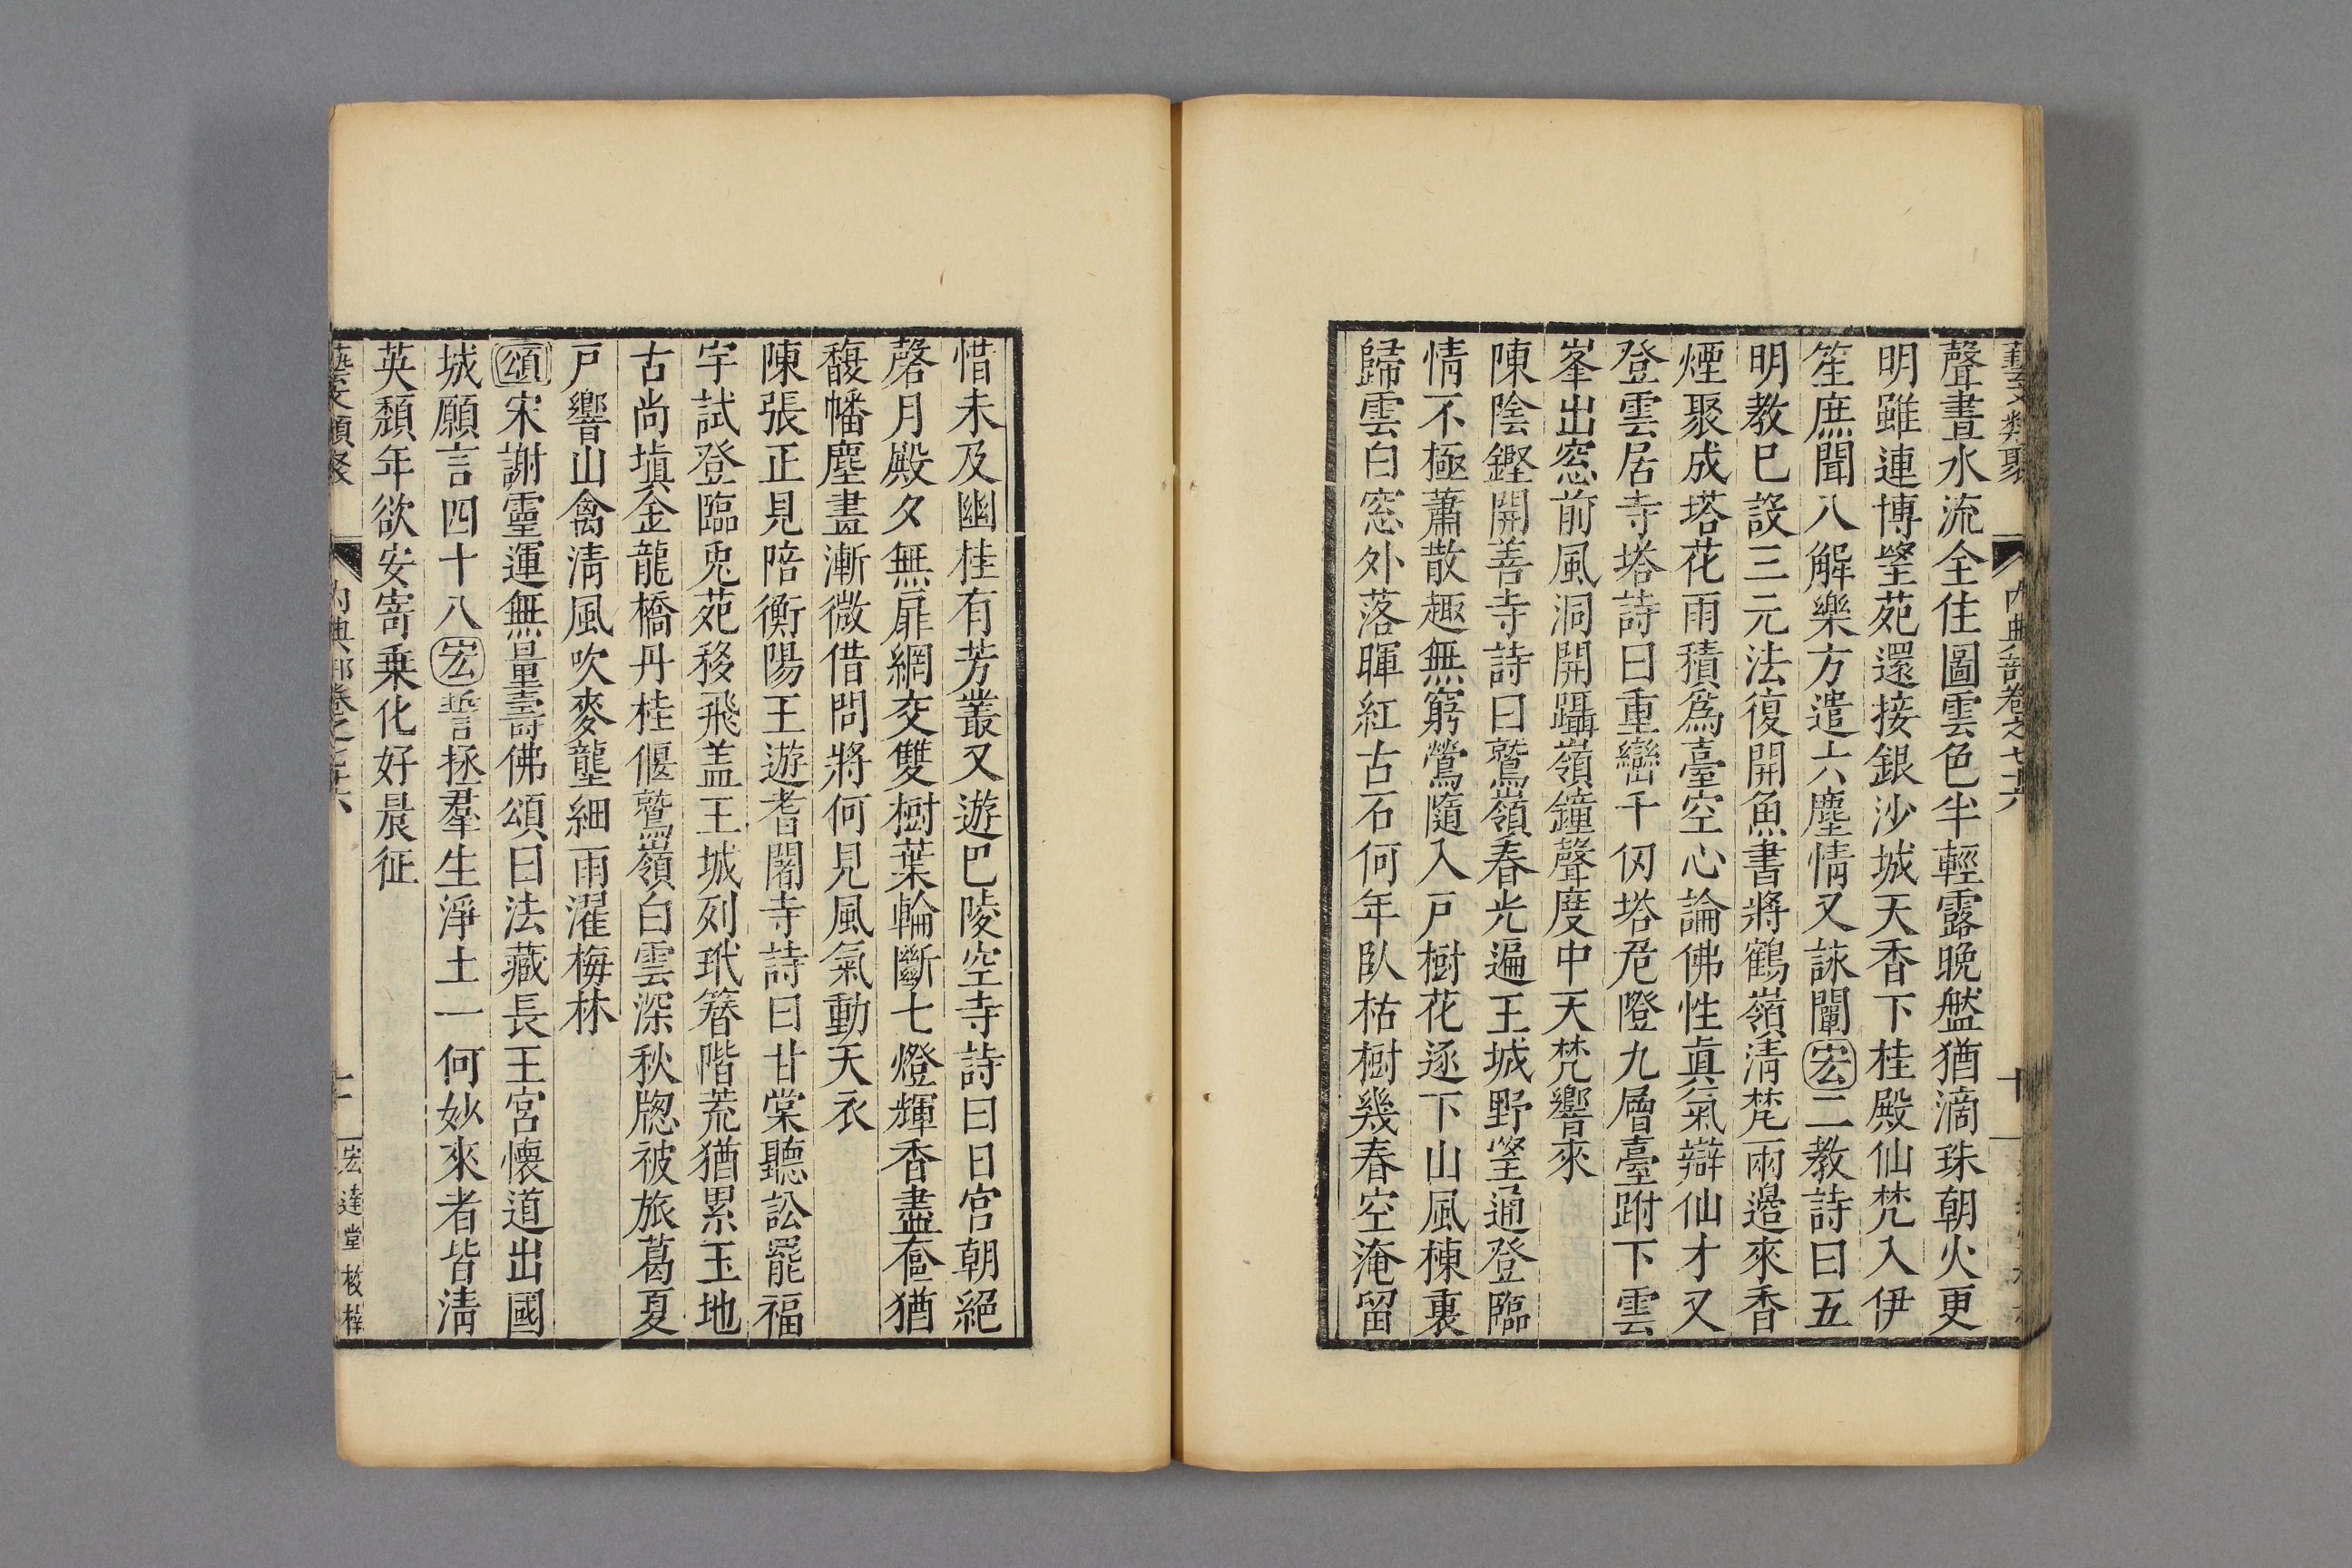 藝文類聚 內典部卷之七十六 十
聲晝水流全住圖雲色半輕露晚盤猶滴珠朝火更
明雖連博望苑還接銀沙城天香下桂殿仙梵入伊
笙庶聞八解樂方遣六塵情又詠闡宏二教詩曰五
明教已設三元法復開魚書將鶴嶺清梵兩邊來香
煙聚成塔花雨積爲臺空心論佛性眞氣辯仙才又
登雲居寺塔詩曰重巒千仞塔危隥九層臺跗下雲
峯出窓前風洞開躡嶺鐘聲度中天梵響來
陳陰鏗開善寺詩曰鷲嶺春光遍王城野望通登臨
情不極蕭散趣無窮鶯隨入戶樹花逐下山風棟裏
歸雲白窓外落暉紅古石何年臥枯樹幾春空淹留
惜未及幽桂有芳叢又遊巴陵空寺詩曰日宮朝絕
磬月殿夕無扉網交雙樹葉輪斷七燈輝香盡奩猶
馥幡塵畫漸微借問將何見風氣動天衣
陳張正見陪衡陽王遊耆闍寺詩曰甘棠聽訟罷福
宇試登臨兎苑移飛盖王城列玳簪階荒猶累玉地
古尚塡金龍橋丹桂偃鷲嶺白雲深秋牎被旅葛夏
戶響山禽清風吹麥壟細雨濯梅林
頌宋謝靈運無量壽佛頌曰法藏長王宮懷道出國
城願言四十八宏誓拯羣生淨土一何妙來者皆清
英頹年欲安寄乗化好晨征
藝文類聚 內典部卷之七十六 十一 宏達堂校梓